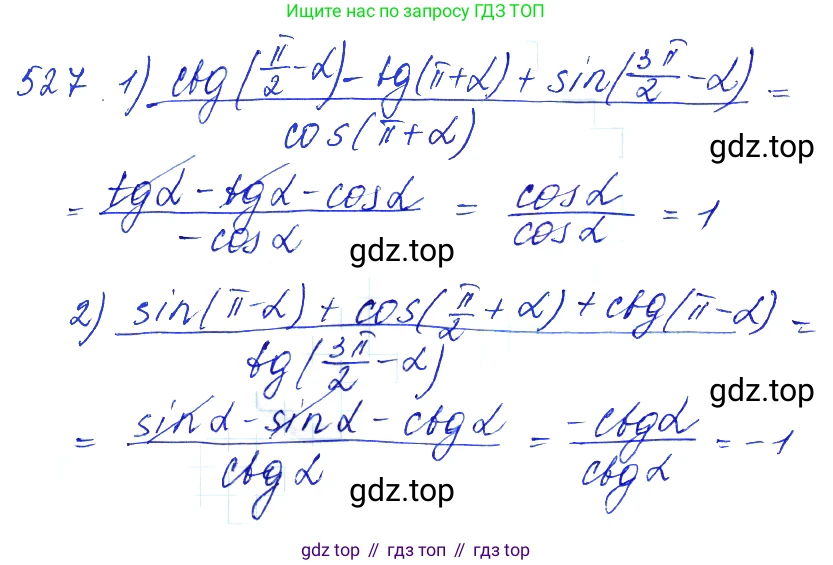 Ищите нас по запросу ГДЗ ТОП
527 1) (ctg(π/2 - α) - tg(π + α) + sin(3π/2 - α)) / cos(π + α) =
gdz.top
= (tgα - tgα - cosα) / (-cosα) = cosα / cosα = 1
gdz.top
2) (sin(π - α) + cos(π/2 + α) + ctg(π - α)) / tg(3π/2 - α) =
gdz.top
= (sinα - sinα - ctgα) / ctgα = -ctgα / ctgα = -1
gdz.top
gdz top // гдз топ // gdz top